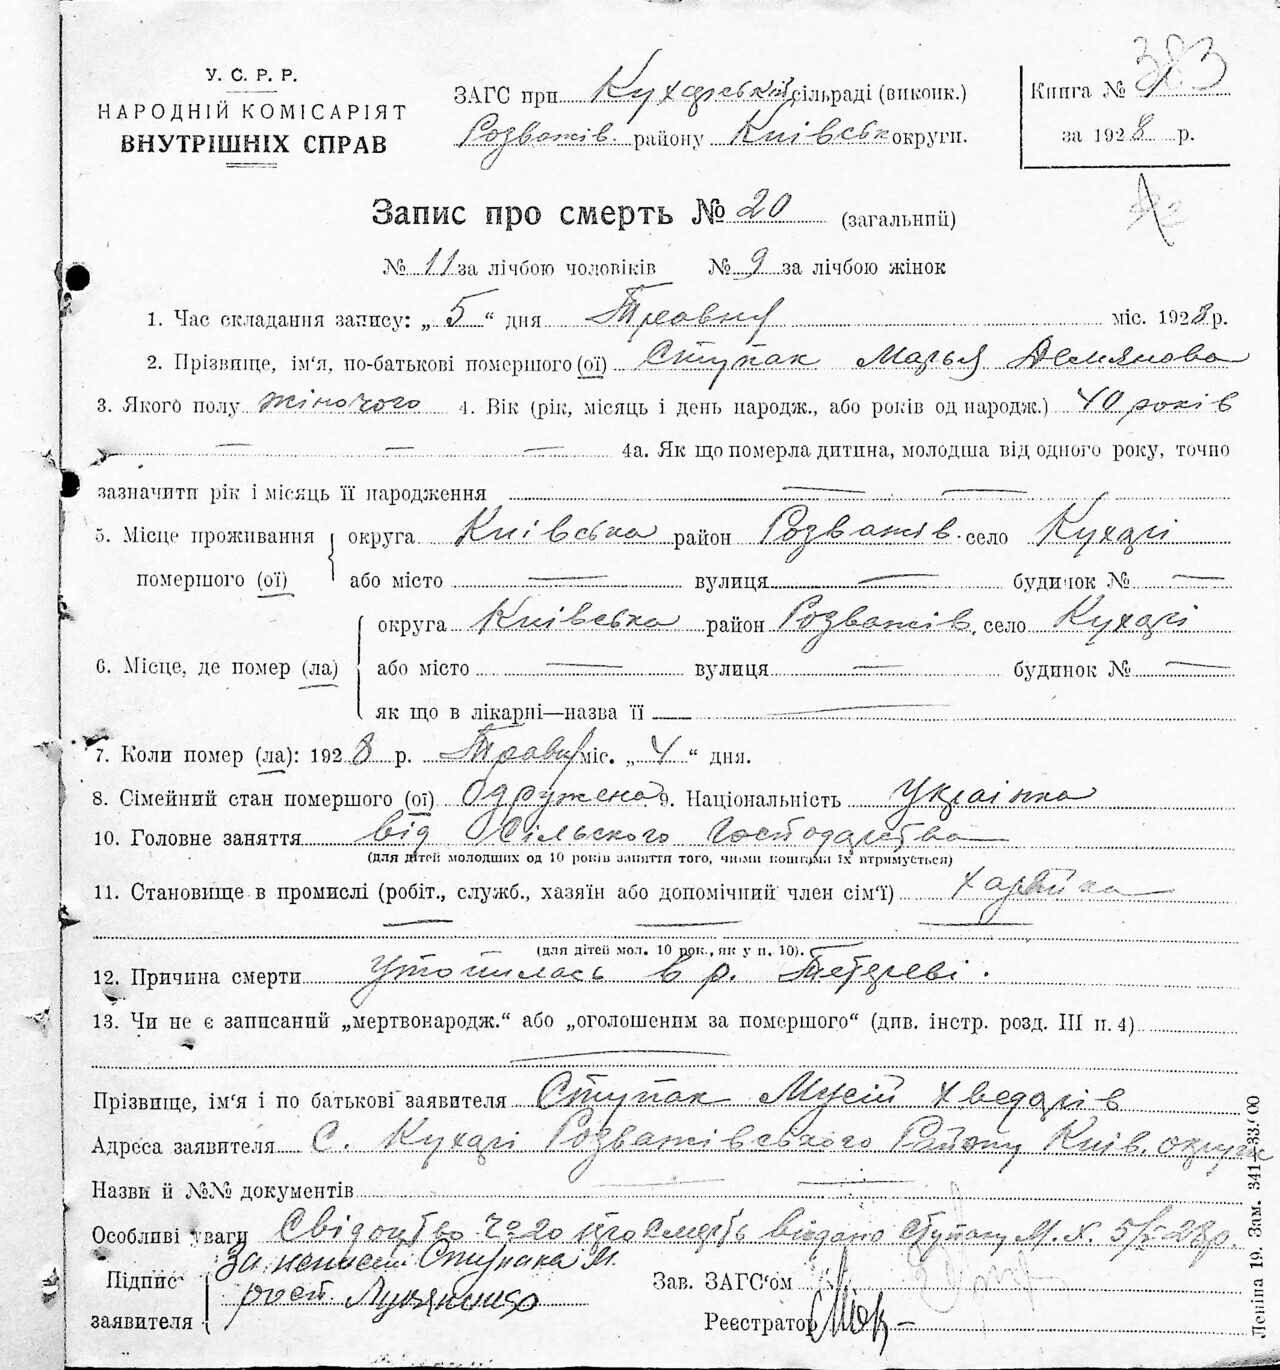 У. С. Р. Р.
НАРОДНІЙ КОМІСАРІЯТ
ВНУТРІШНІХ СПРАВ
ЗАГС при Кухарській сільраді (виконк.)
Розважів. району Київськ округи.
Книга № 383
за 1928 р.
Запис про смерть № 20 (загальний)
№ 11 за лічбою чоловіків № 9 за лічбою жінок
1. Час складання запису: „ 5 “ дня Травня міс. 1928 р.
2. Прізвище, ім'я, по-батькові помершого (ої) Ступак Марья Демянова
3. Якого полу жіночого 4. Вік (рік, місяць і день народж., або років од народж.) 40 років
— — — 4а. Як що померла дитина, молодша від одного року, точно
зазначити рік і місяць її народження — —
5. Місце проживання помершого (ої) округа Київська район Розважів. село Кухарі
або місто — вулиця — будинок № —
6. Місце, де помер (ла) округа Київська район Розважів. село Кухарі
або місто — вулиця — будинок № —
як що в лікарні—назва її —
7. Коли помер (ла): 1928 р. Травня міс. „ 4 “ дня.
8. Сімейний стан помершого (ої) Одружена 9. Національність Українка
10. Головне заняття від Сільського Господарства
(для дітей молодших од 10 років заняття того, чиїми коштами їх втримується)
11. Становище в промислі (робіт., служб., хазяїн або допомічний член сім'ї)
— — —
(для дітей мол. 10 рок., як у п. 10).
12. Причина смерти Утопилась в р. Тетереві.
13. Чи не є записаний „мертвонародж.“ або „оголошеним за помершого“ (див. інстр. розд. III п. 4)
—
Прізвище, ім'я і по батькові заявителя Ступак Мусій Хведорів
Адреса заявителя С. Кухарі Розважівського Району Київ. округи
Назви й №№ документів — —
Особливі уваги Свідоцтво № 20 про смерть видано Ступаку М. Х. 5/V-28р.
Підпис заявителя За неписьм Ступака М.
рост.
Зав. ЗАГС'ом
Реєстратор
Леніна 19. Зам. 341—33.00